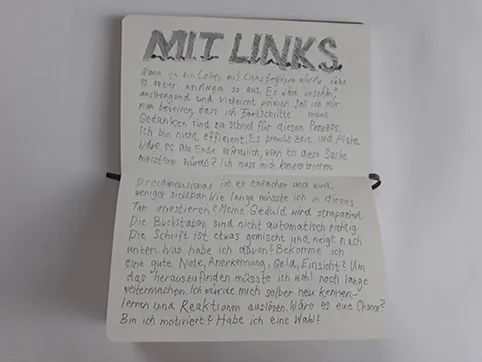 MIT LINKS
Wenn ein Leben mit Links beginnen
es unter Anfängen so aus. Es wäre unschön,
anstrengend und vielleicht peinlich. Soll ich mir
nun beweisen, dass ich Fortschritte... meine
Gedanken sind zu schnell für diesen Prozess.
Ich bin nicht efficient. Es braucht Zeit und Platz
Wäre es am Ende erfreulich, wenn ich diese Sache
meistern würde? Ich muss mich konzentrieren
Dreidimensional ist es einfacher und wird
weniger sichtbar. Wie lange müsste ich in dieses
Tun investieren? Meine Geduld wird strapaziert.
Die Buchstaben sind nicht automatisch richtig.
Die Schrift ist etwas gemischt und neigt nach
unten. Was habe ich davon? Bekomme ich
eine gute Note, Anerkennung, Geld, Einsicht? Um
das herauszufinden müsste ich wohl noch lange
weitermachen. Ich würde mich selber neu kennen-
lernen und Reaktionen auslösen. Wäre es eine Chance?
Bin ich motiviert? Habe ich eine Wahl?